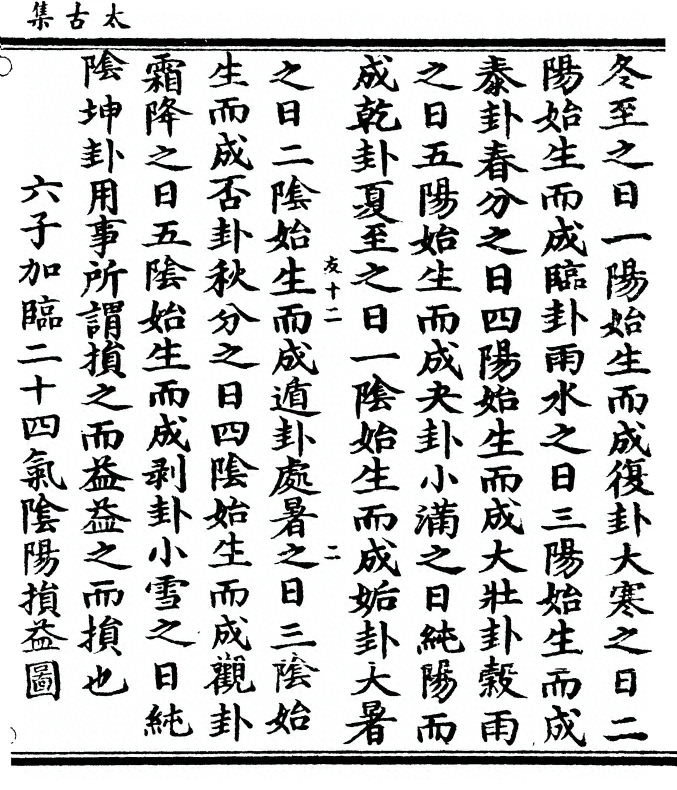 太古集
冬至之日一陽始生而成復卦大寒之日二
陽始生而成臨卦雨水之日三陽始生而成
泰卦春分之日四陽始生而成大壯卦穀雨
之日五陽始生而成夬卦小滿之日純陽而
成乾卦夏至之日一陰始生而成姤卦大暑
友十二
二
之日二陰始生而成遁卦處暑之日三陰始
生而成否卦秋分之日四陰始生而成觀卦
霜降之日五陰始生而成剥卦小雪之日純
陰坤卦用事所謂損之而益益之而損也
六子加臨二十四氣陰陽損益圖